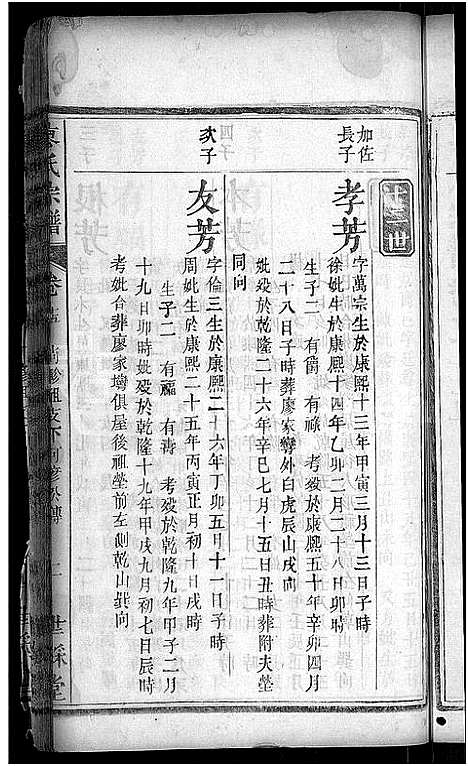 十三世
加佐
長子
孝芳
字萬宗生於康熙十三年甲寅三月十三日子時
徐妣生於康熙十四年乙卯二月二十八日卯時
生子二　有爵　有祿　考歿於康熙五十年辛卯四月
二十八日子時葬廖家灣外白虎辰山戌向
妣歿於乾隆二十六年辛巳七月十五日丑時葬附夫塋
同向
次子
友芳
字倫三生於康熙二十六年丁卯五日十一日子時
周妣生於康熙二十五年丙寅正月初十日戌時
生子二　有　有　考歿於乾隆九年甲子二月
十九日卯時妣歿於乾隆十九年甲戌九月初七日辰時
考妣合葬廖家塆俱屋後祖塋前左側乾山巽向
氏宗譜
卷